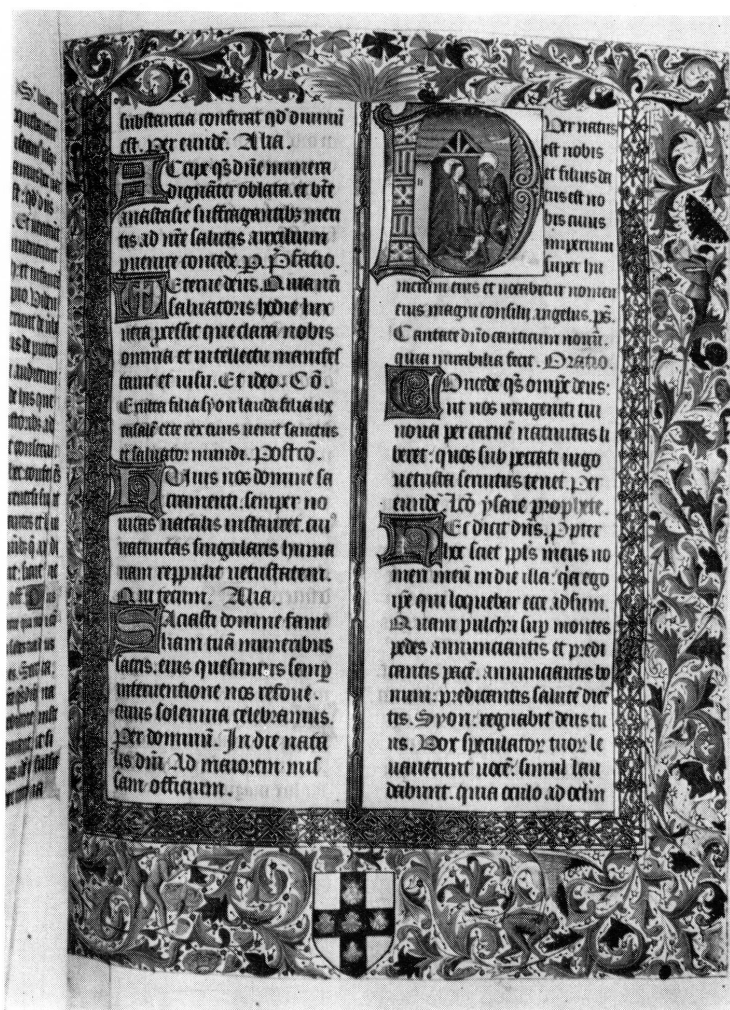 substantia conferat qd diuinū
est. Per eundē. Alia.
Accipe qs dñe munera
dignāter oblata. et bēte
anastasie suffragantibꝫ meri
tis ad nrē salutis auxilium
puenire concede. p. Pfatio.
Eterne deus. Quia nrī
saluatoris hodie lux
uera pcessit que clara nobis
omnia et intellectu manifes
tauit et uisu. Et ideo. Cō.
Exulta filia syon lauda filia ihe
rusalē ecce rex tuus uenit sanctus
et saluator mundi. Postcō.
Huius nos domine sa
cramenti. semper no
uitas natalis instauret. cuiꝰ
natiuitas singularis huma
nam reppulit uetustatem.
Qui tecum. Alia.
Saciasti domine fami
liam tuā muneribus
sacris. eius quesumus semp
interuentione nos refoue.
cuius solemnia celebramus.
Per dominū. In die nata
lis dñi. Ad maiorem mis
sam officium.
Puer natus
est nobis
et filius da
tus est no
bis cuius
imperium
super hu
merum eius et uocabitur nomen
eius magni consilii angelus. ps.
Cantate dño canticum nouū.
quia mirabilia fecit. Oratio.
Concede qs omps deus:
ut nos unigeniti tui
noua per carnē natiuitas li
beret: quos sub peccati iugo
uetusta seruitus tenet. Per
eundē. Lcō ysaie prophete.
Hec dicit dñs. Ppter
hoc sciet ppls meus no
men meū in die illa: qia ego
ipē qui loquebar ecce adsum.
Quam pulchri sup montes
pedes annunciantis et predi
cantis pacē. annunciantis bo
num: predicantis salutē dicē
tis. Syon: regnabit deus tu
us. Vox speculator tuor le
uauerunt uocē: simul lau
dabunt. quia oculo ad oclm